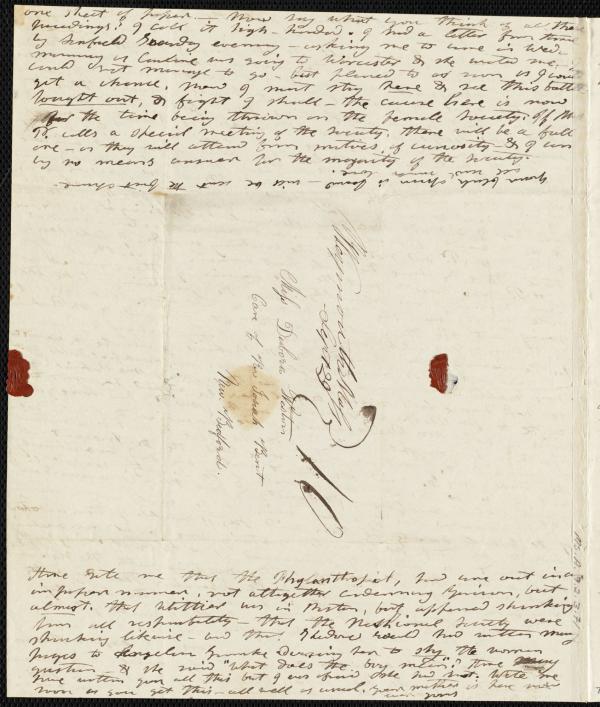 one sheet of paper — Now say what you think of all these
proceedings? I call it high-handed. I had a letter from Anne
by Sunday evening — asking me to come in Wed-
morning as Caroline was going to Worcester & she wanted me, I
could not manage to go — but planned to as soon as I could
get a chance. Now I must stay here & see this battle
fought out, & fight I shall — the cause here is now
for the time being thrown on the female Society. If Mrs
calls a special meeting of the society, there will be a full
one — as they will attend from motives of curiosity — & I can
by no means answer for the majority of the society.
your black is found — will be sent the first
Weymouth Mass
Sept
10
Miss Debora Weston
Care of Rev Josiah Bent
New Bedford.
Anne wrote me that the Philanthropist, had come out in a
improper manner, not altogether condemning Garrison, but
almost. That Whittier was in Boston, but, appeared shrinking
from all responsibility — that the National Society were
shrinking likewise — and that Theodore Weld had written many
pages to Angelina Grimke Desiring her to stop the woman
question — & she said "what does the boy mean"? Anne may
have written you all this but I was afraid she had not. Write me
soon as you get this — all well as usual. your mother is here now
ever yours
Ms.A.9.2.